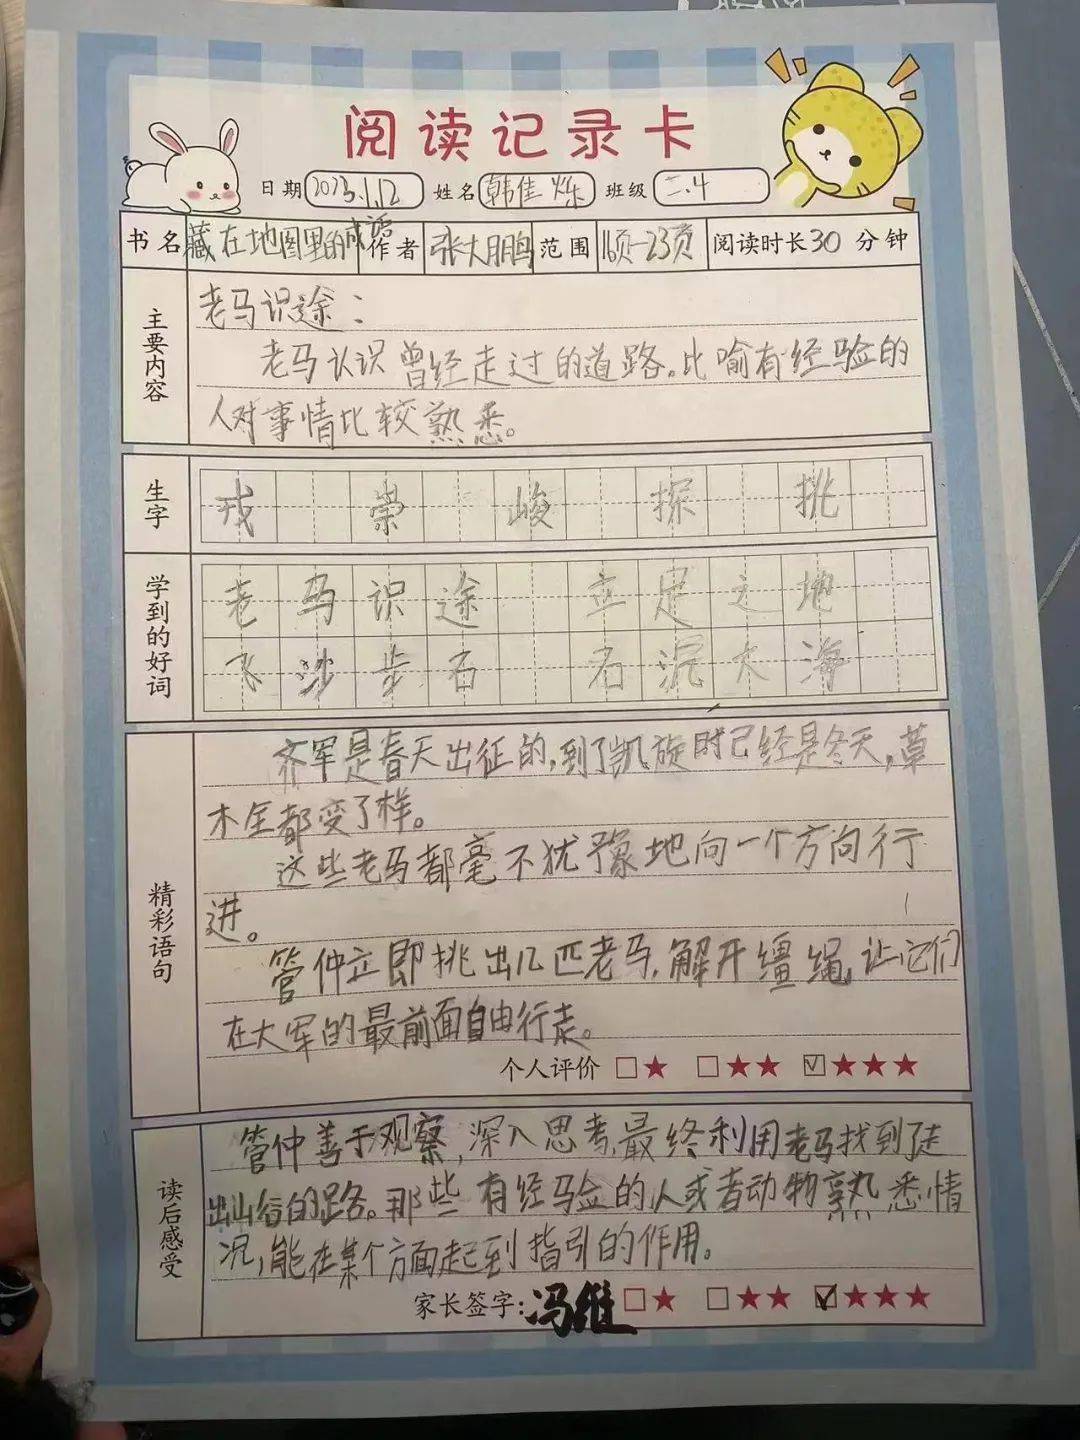 阅读记录卡
日期 2023.1.12 姓名 韩佳烁 班级 二.4
书名 藏在地图里的成语 作者 张大鹏 范围 16页-23页 阅读时长30分钟
主要内容
老马识途：
老马认识曾经走过的道路。比喻有经验的
人对事情比较熟悉。
生字
戎 崇 峻 探 挑
学到的好词
老马识途 立足之地
飞沙步石 石沉大海
精彩语句
齐军是春天出征的,到了凯旋时已经是冬天,草
木全都变了样。
这些老马都毫不犹豫地向一个方向行
进。
管仲立即挑出几匹老马,解开缰绳,让它们
在大军的最前面自由行走。
个人评价 □★ □★★ ☑★★★
读后感受
管仲善于观察,深入思考,最终利用老马找到走
出山谷的路。那些有经验的人或者动物熟悉情
况,能在某个方面起到指引的作用。
家长签字:冯维 □★ □★★ ☑★★★